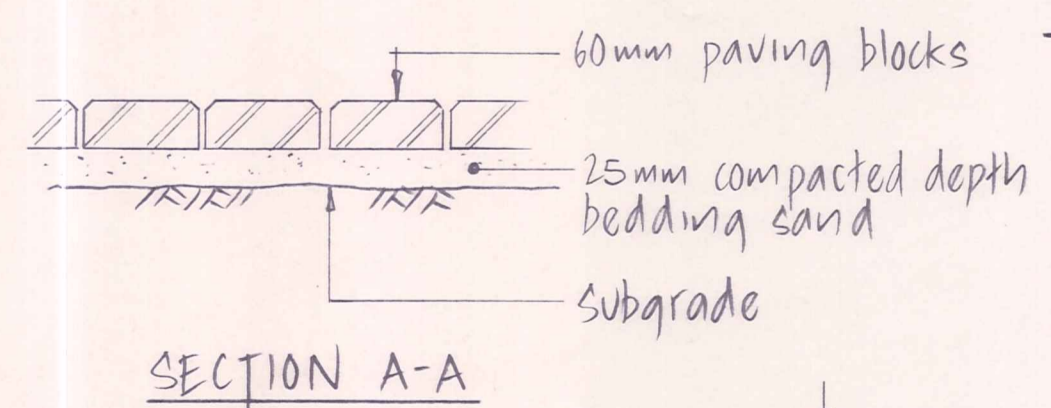 60mm paving blocks
25mm compacted depth
bedding sand
subgrade
SECTION A-A